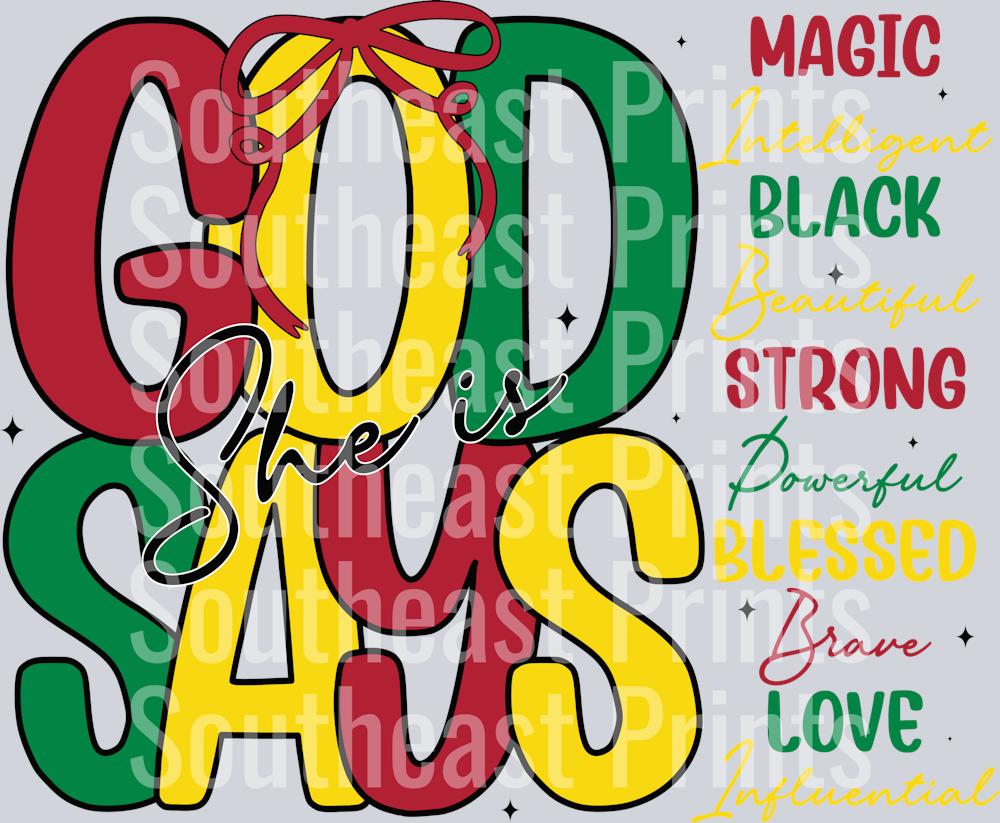 GOD
She is
SAYS
MAGIC
Intelligent
BLACK
Beautiful
STRONG
Powerful
BLESSED
Brave
LOVE
Influential
Southeast Prints
Southeast Prints
Southeast Prints
Southeast Prints
Southeast Prints
Southeast Prints